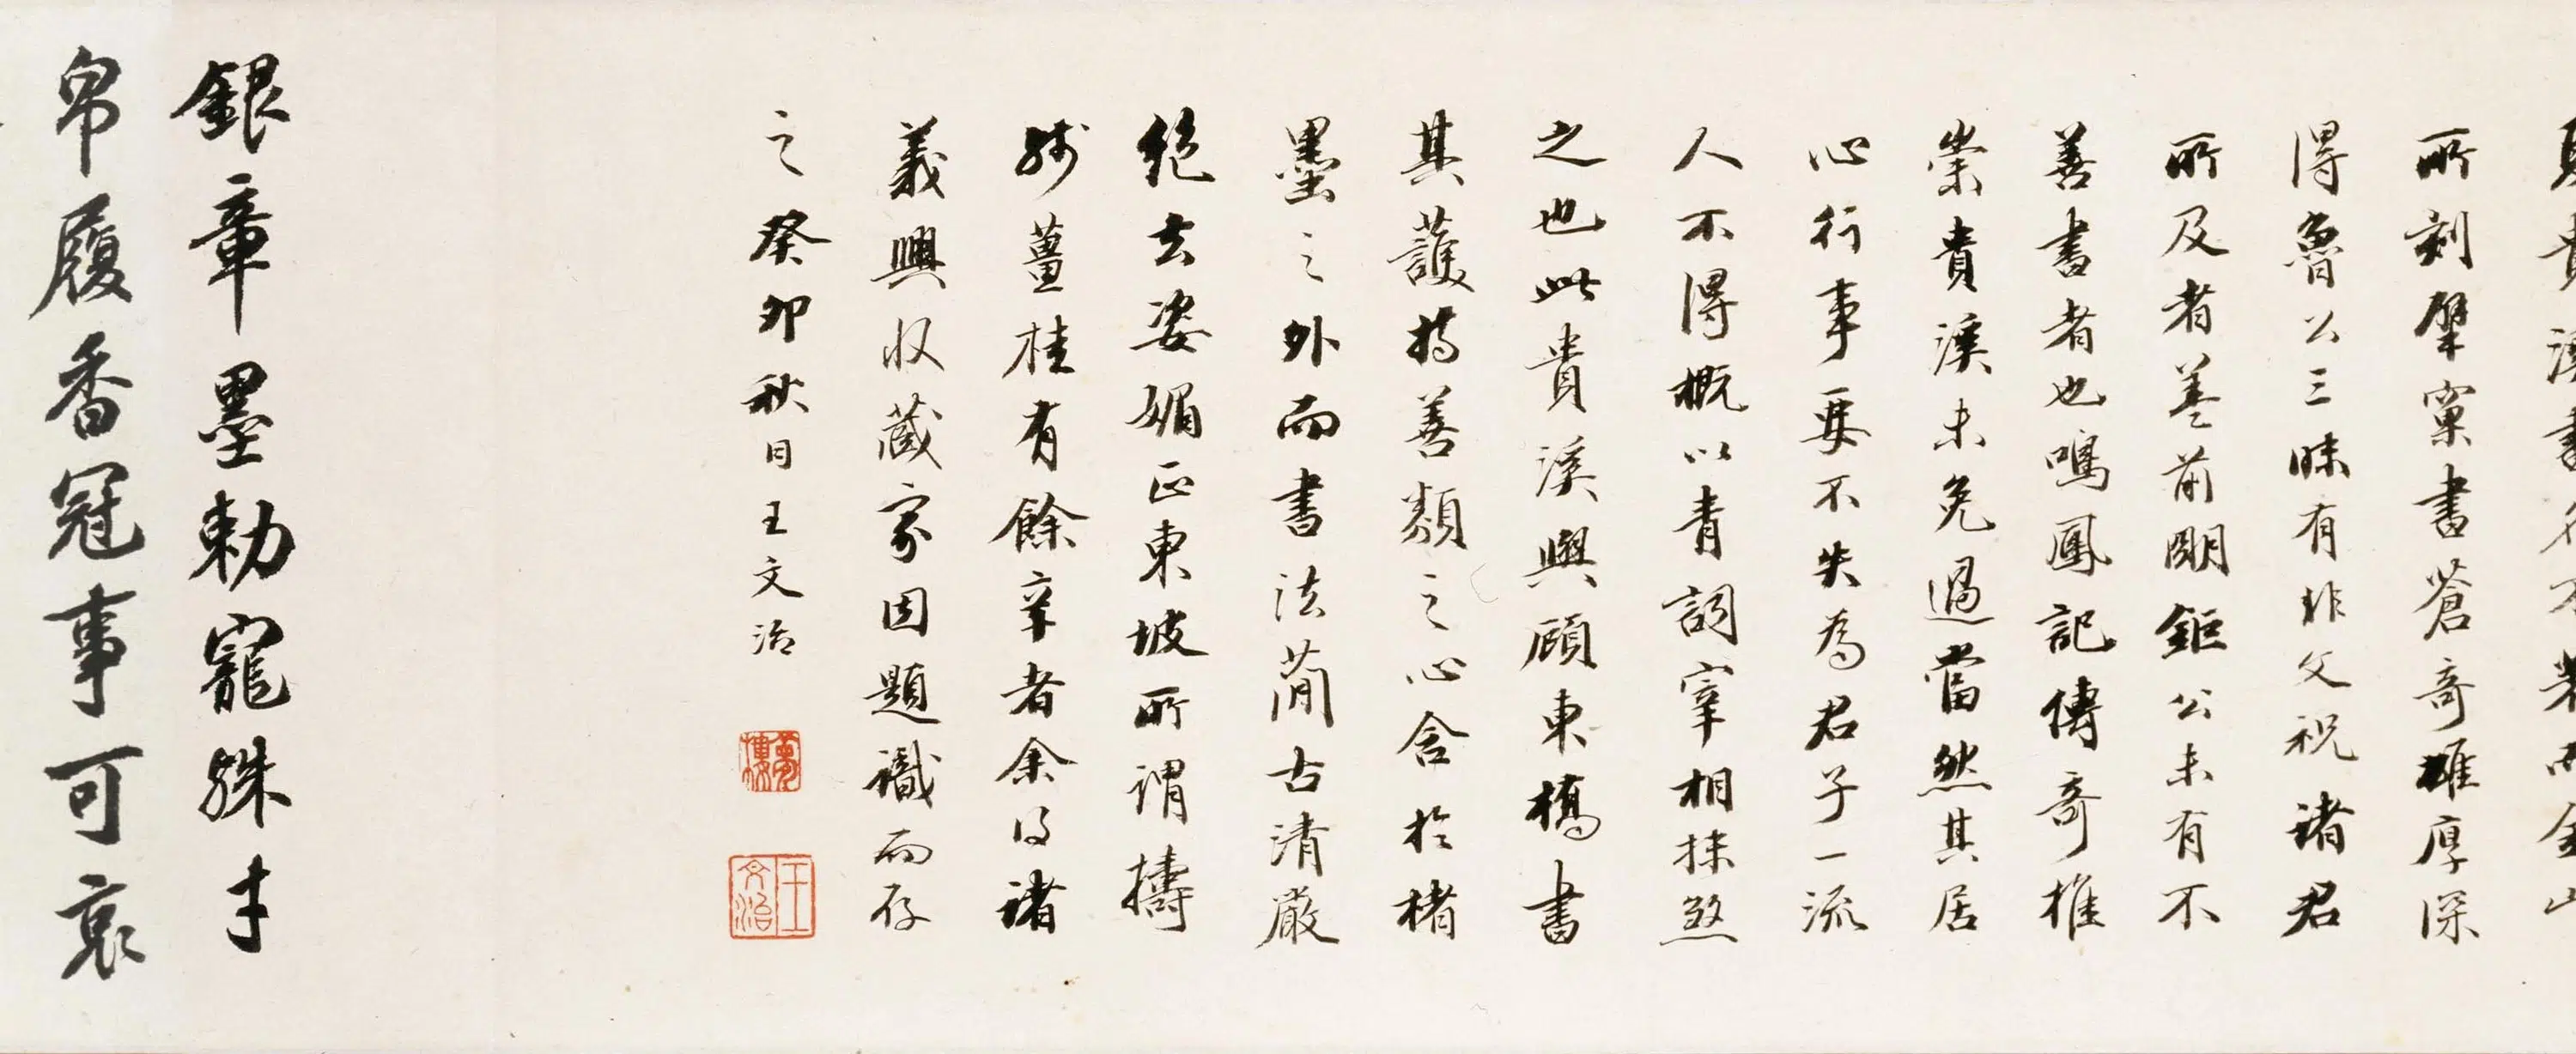 貴溪書
所刻擘窠書蒼奇雄厚深
得魯公三昧有非文祝諸君
所及者蓋前明鉅公未有不
善書者也鳴鳳記傳奇推
崇貴溪未免過當然其居
心行事要不失為君子一流
人不得概以青詞宰相抹煞
之也此貴溪與顧東橋書
其護持善類之心含於楮
墨之外而書法蕳古清嚴
絕去姿媚正東坡所謂擣
殘薑桂有餘辛者余得諸
義興收藏家因題識而存
之癸卯秋日王文治
夢樓
王文治
銀章墨勅寵殊才
帛履香冠事可哀